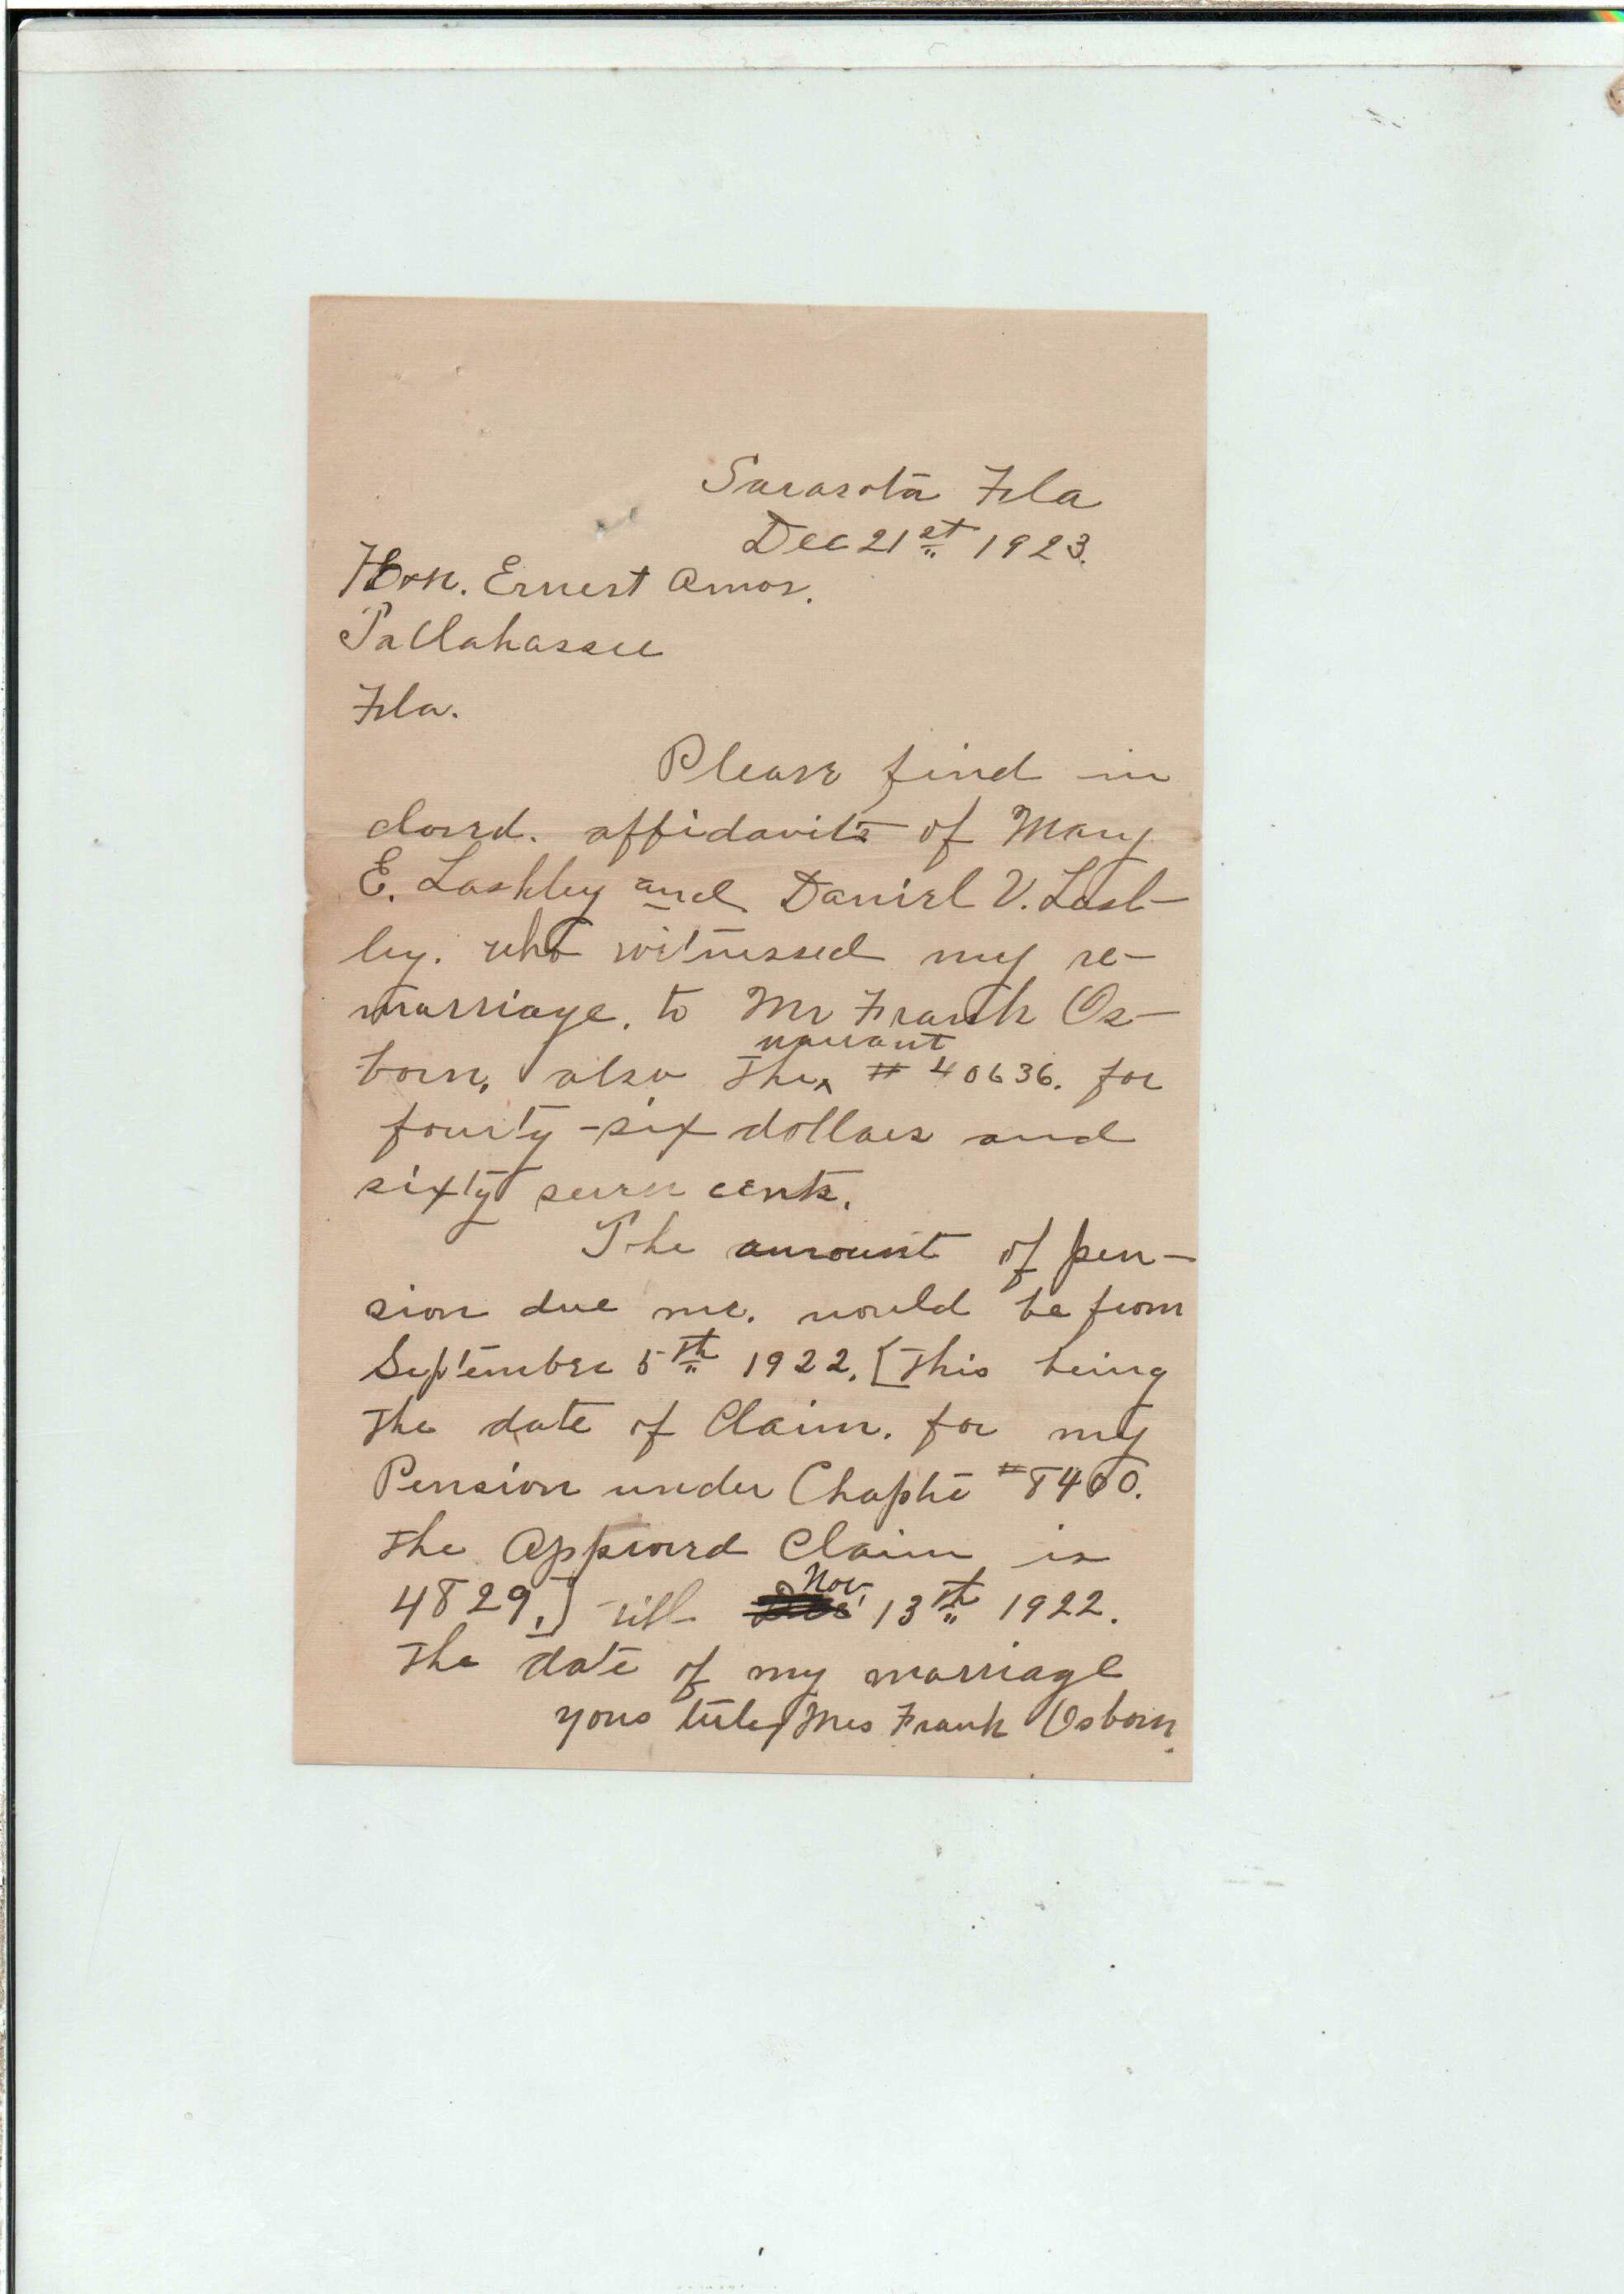 Sarasota Fla
Dec 21st 1923.
Hon. Ernest Amos.
Tallahassee
Fla.
Please find in
closed. affidavits of Mary
E. Lashley and Daniel V. Lash-
ley. who witnessed my re-
marriage. to Mr Frank Os-
born, also the warrant # 40636. for
fourty-six dollars and
sixty seven cents.
The amount of pen-
sion due me. would be from
September 5th 1922. [This being
the date of Claim. for my
Pension under Chapter #8400.
the Approved Claim is
4829.] till Nov 13th 1922.
the date of my marriage
yours truley Mrs Frank Osborn.